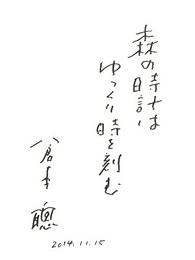 森の時計は
ゆっくり時を刻む
倉本 聰
2014.11.15